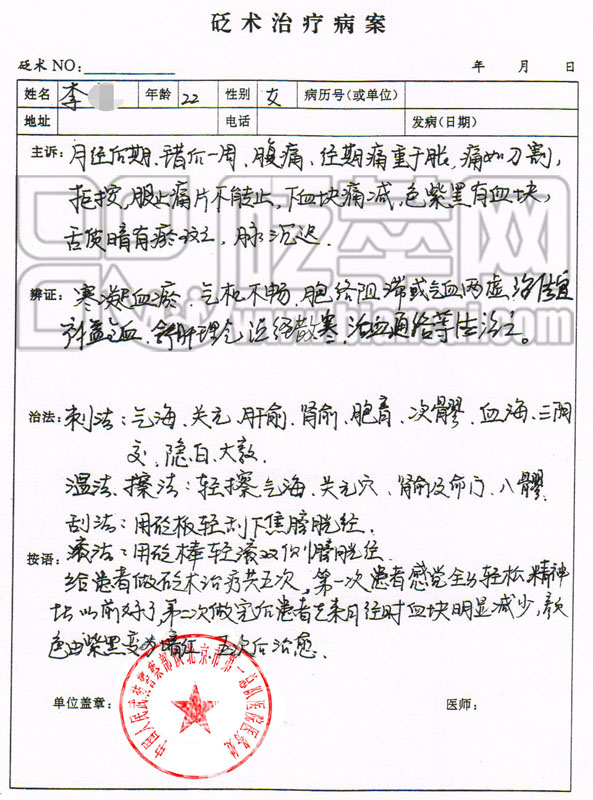 砭术治疗病案
砭术NO:
年 月 日
姓名 李 年龄 22 性别 女 病历号(或单位)
地址 电话 发病(日期)
主诉: 月经后期、错后一周、腹痛、经期痛重于胀,痛如刀割,
拒按,服止痛片不能止,下血块痛减,色紫黑有血块,
舌质暗有瘀,脉沉迟.
辨证: 寒凝血瘀、气机不畅、胞络阻滞或气血两虚,治
益血、舒肝理气、温经散寒、活血通络等法治之。
治法: 刺法:气海、关元、肝俞、肾俞、胞肓、次髎、血海、三阴
交、隐白、大敦.
温法、擦法:轻擦气海、关元穴、肾俞及命门、八髎.
刮法:用砭板轻刮下焦膀胱经.
按语: 滚法:用砭棒轻滚双侧膀胱经
给患者做砭术治疗共五次,第一次患者感觉全身轻松,精神
比以前好了,第二次做完后患者来月经时血块明显减少,颜
色由紫黑变为暗红.五次后治愈.
单位盖章: 医师:
中国人民武装警察部队北京市第一总队医院医务处
砭萃网